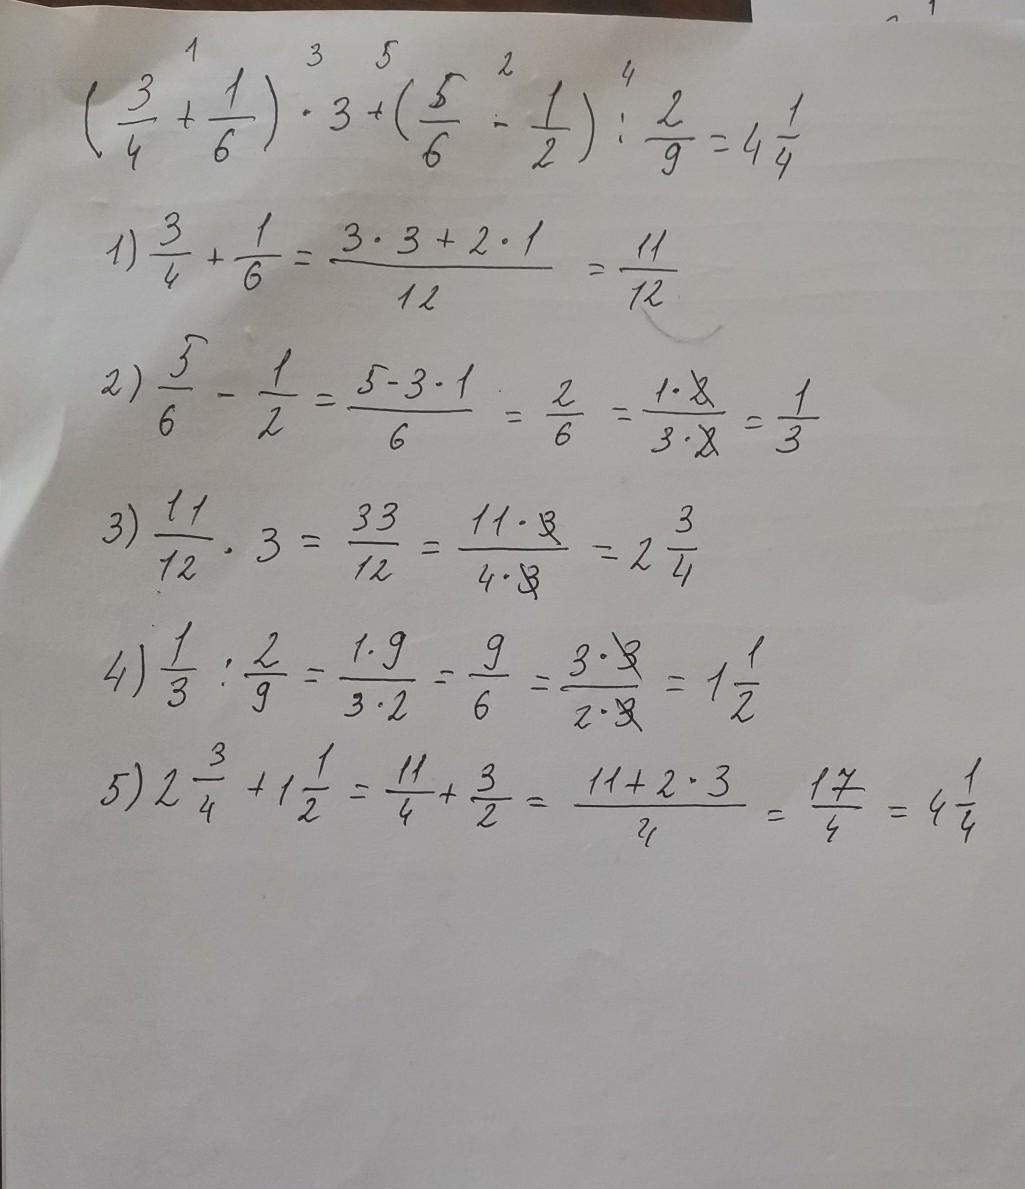 1 3 5 2 4
(3/4 + 1/6) · 3 + (5/6 - 1/2) : 2/9 = 4 1/4
1) 3/4 + 1/6 = (3 · 3 + 2 · 1)/12 = 11/12
2) 5/6 - 1/2 = (5 - 3 · 1)/6 = 2/6 = (1 · 2)/(3 · 2) = 1/3
3) 11/12 · 3 = 33/12 = (11 · 3)/(4 · 3) = 2 3/4
4) 1/3 : 2/9 = (1 · 9)/(3 · 2) = 9/6 = (3 · 3)/(2 · 3) = 1 1/2
5) 2 3/4 + 1 1/2 = 11/4 + 3/2 = (11 + 2 · 3)/4 = 17/4 = 4 1/4